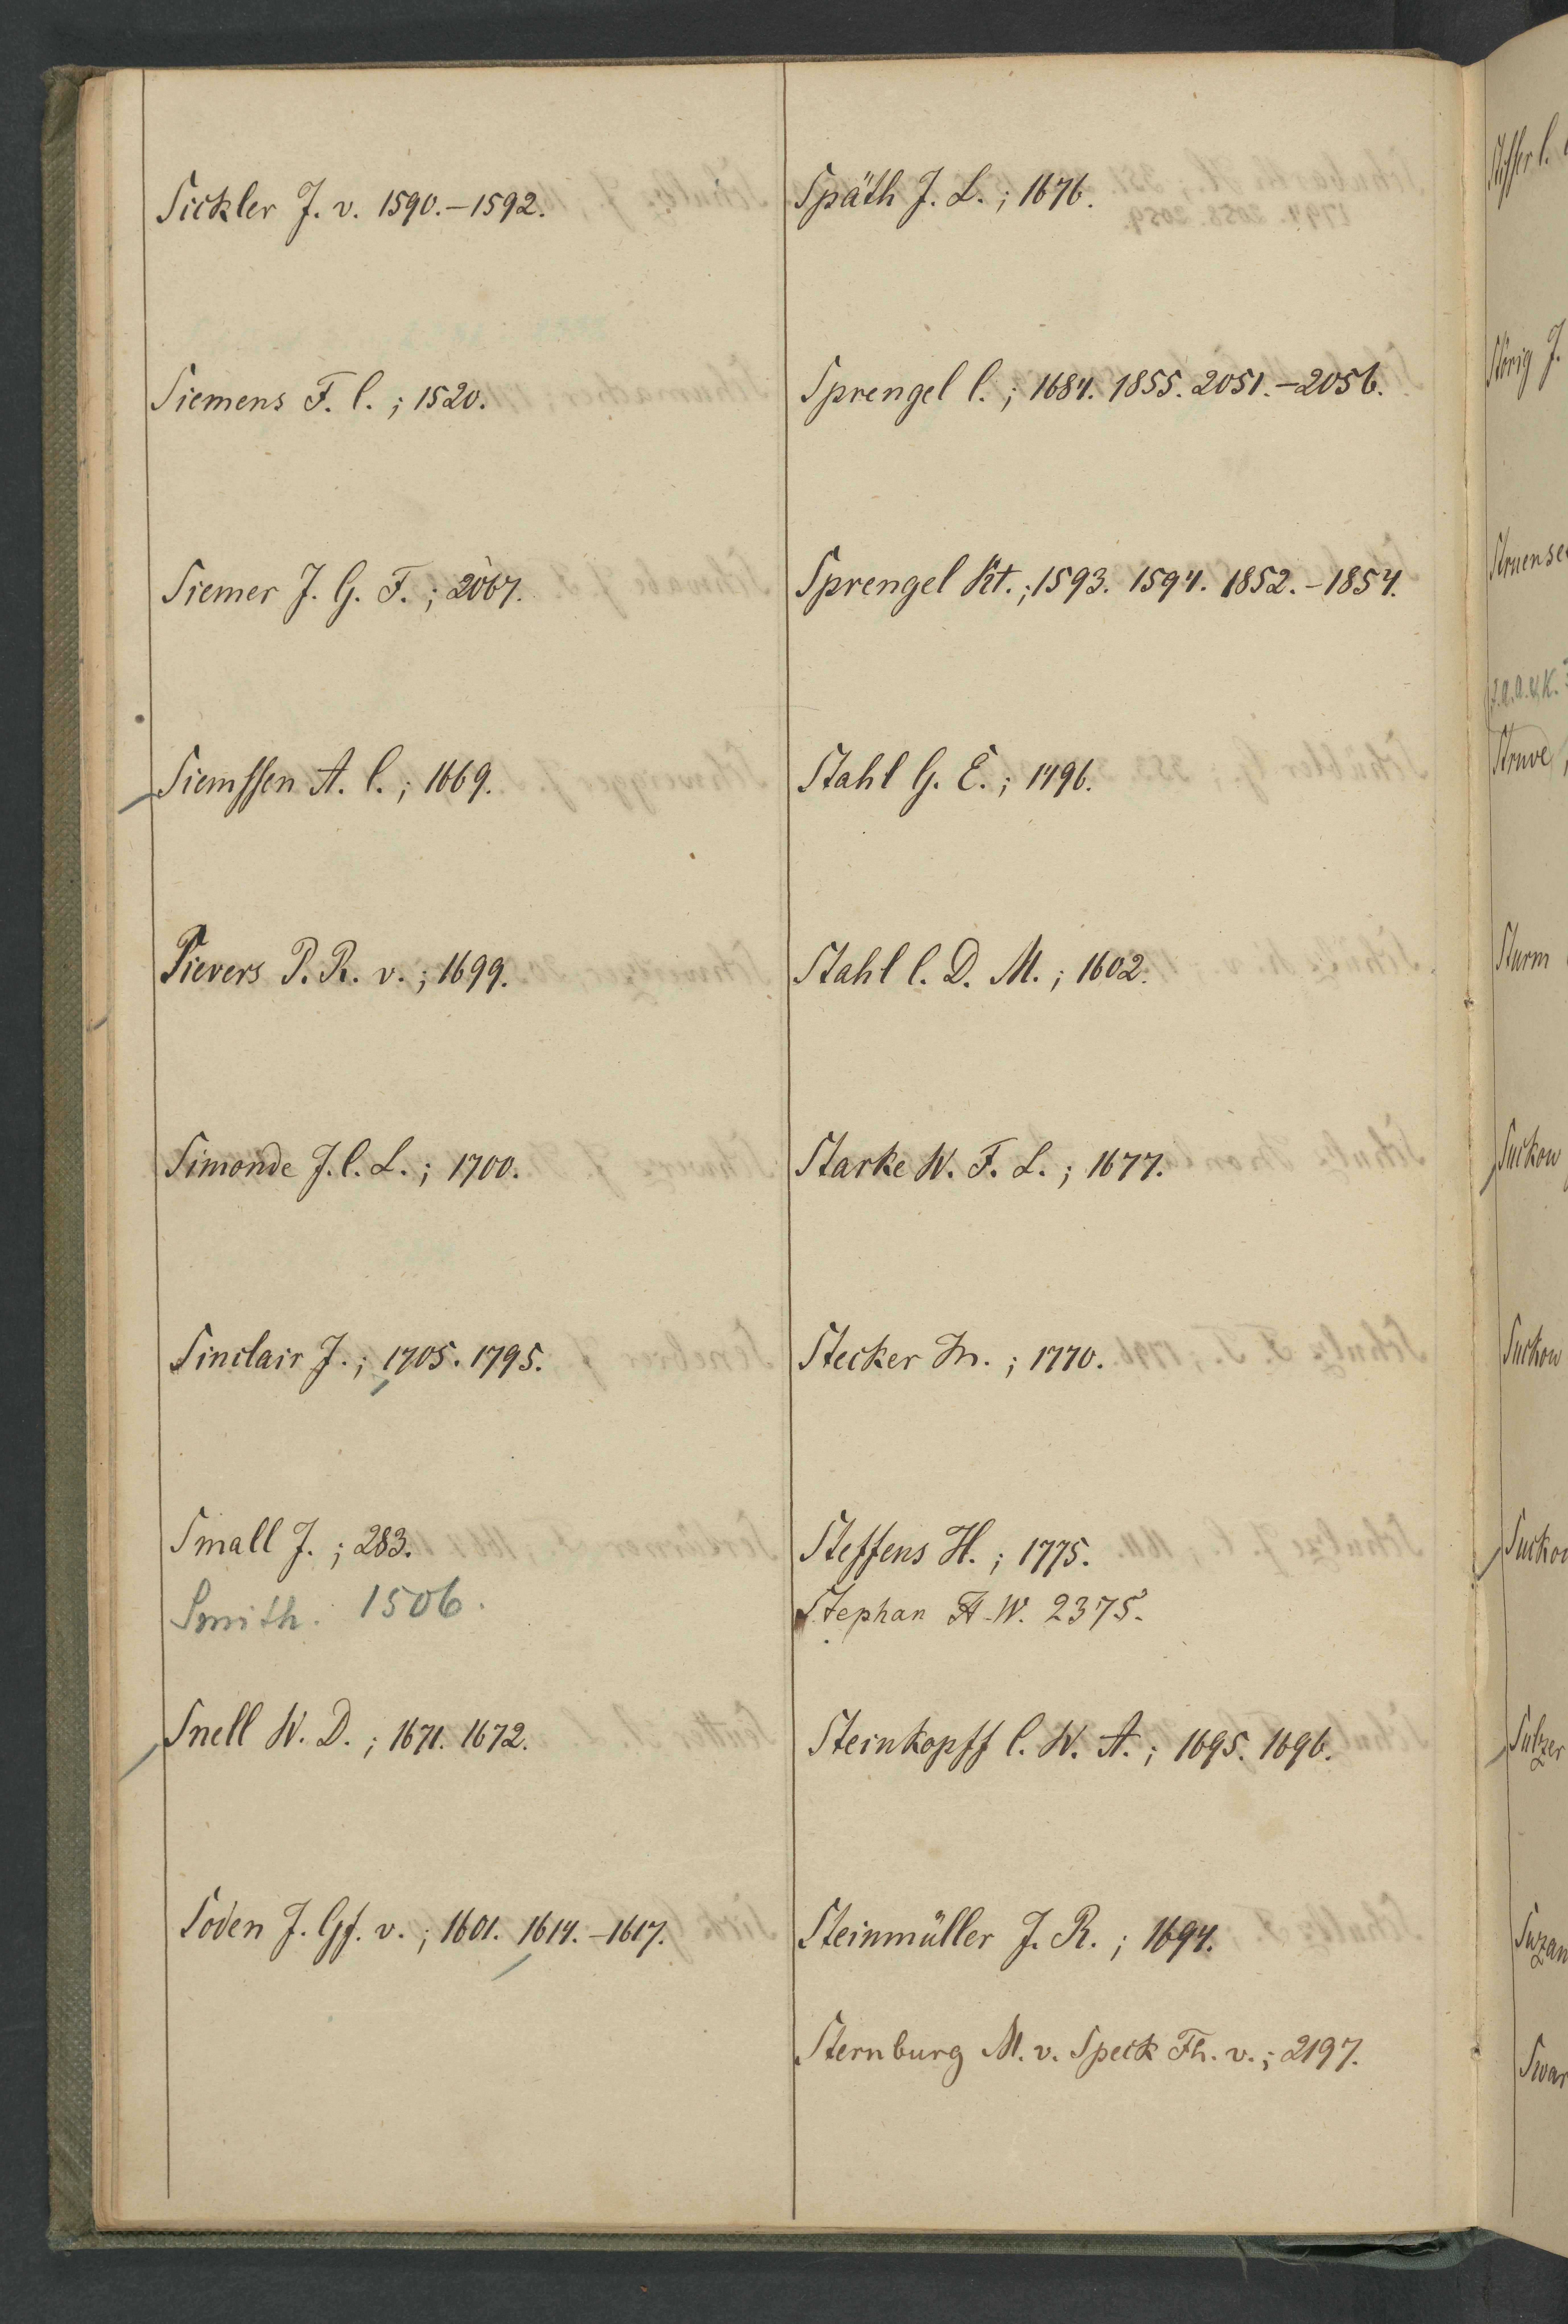 Sickler J. v. 1590.-1592.
Siemens F. C.; 1520.
Siemer J. G. F.; 2067.
Siemssen A. C.; 1669.
Sievers P. R. v.; 1699.
Simonde J. C. L.; 1700.
Sinclair J.; 1705. 1795.
Small J.; 283.
Smith. 1506.
Snell W. D.; 1671. 1672.
Soden J. Gf. v.; 1601. 1614.-1617.
Späth J. L.; 1676.
Sprengel C.; 1684. 1855. 2051.-2056.
Sprengel Kt.; 1593. 1594. 1852.-1854.
Stahl G. E.; 1496.
Stahl C. D. M.; 1602.
Starke W. F. L.; 1677.
Stecker Fr.; 1770.
Steffens H.; 1775.
Stephan A. W. 2375.
Steinkopff C. W. A.; 1695. 1696.
Steinmüller J. R.; 1694.
Sternburg M. v. Speck Fh. v.; 2197.
Störig J.
Struve
Sturm
Suckow
Suckow
Sulzer